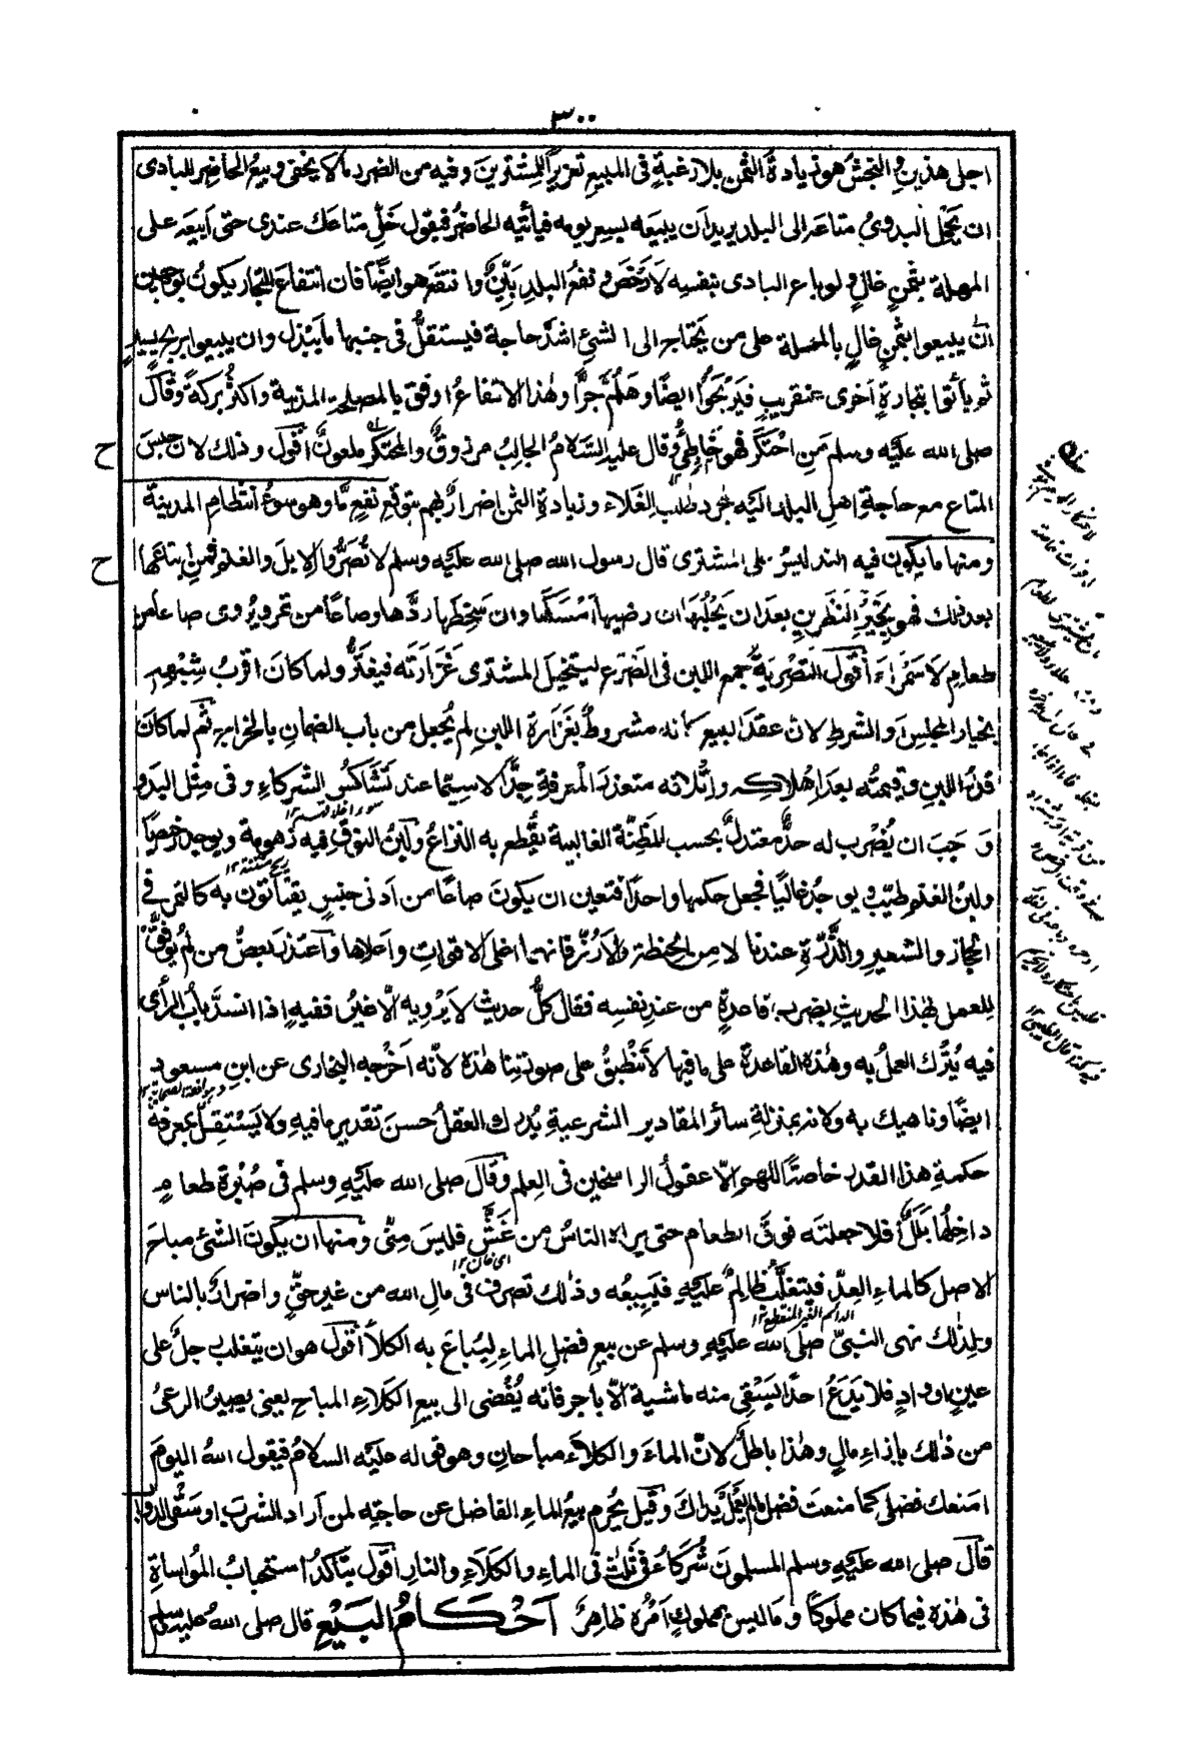 ٣٠٠
اجل هذين و النجش هو زيادة الثمن بلا رغبة فى المبيع تغريرًا للمشترين وفيه من الضرر ما لا يخفى وبيع الحاضر للبادى
ان يحمل البدوى متاعه الى البلد يريد ان يبيعه بسعر يومه فيأتيه الحاضر فيقول خل متاعك عندى حتى أبيعه على
المهلة بثمن غال ولو باع البادى بنفسه لأرخص ونفع البلديين وانتفع هو ايضًا فان انتفاع التجار يكون بوجهين
ان يبيعوا بثمن غال بالمهلة على من يحتاج الى الشئ اشد حاجة فيستقل فى جنبها ما يبذل وان يبيعوا بربح يسير
ثم يأتوا بتجارة اخرى عنقريب فيربحوا ايضًا وهلم جرًّا وهذا الانتفاع اوفق بالمصلحة المدنية واكثر بركة وقال
صلى الله عليه وسلم من احتكر فهو خاطئ وقال عليه السلام الجالب مرزوق والمحتكر ملعون اقول وذلك لان حبس
المتاع مع حاجة اهل البلد اليه لمجرد طلب الغلاء وزيادة الثمن اضرار بهم بتوقع نفع ما وهو سوء انتظام المدينة
ومنها ما يكون فيه التدليس على المشترى قال رسول الله صلى الله عليه وسلم لا تصروا الابل والغنم فمن ابتاعها
بعد ذلك فهو بخير النظرين بعد ان يحلبها ان رضيها أمسكها وان سخطها ردها وصاعًا من تمر ويروى صاعا من
طعام لا سمراء أقول التصرية جمع اللبن فى الضرع ليتخيل المشترى غزارته فيغتر ولما كان اقرب شبهه
بخيار المجلس او الشرط لان عقد البيع كأنه مشروط بغزارة اللبن لم يجعل من باب الضمان بالخراج ثم لما كان
قدر اللبن وقيمته بعد اهلاكه واتلافه متعذر المعرفة جدًّا لا سيما عند تشاكس الشركاء وفى مثل البدو
سوء اخلاقهم ١٢
وجب ان يضرب له حد معتدل بحسب المظنة الغالبية يقطع به النزاع ولبن النوق فيه زهومة ويوجد رخيصًا
ريح منتنة ١٢
ولبن الغنم طيب يوجد غاليًا فجعل حكمها واحدًا فتعين ان يكون صاعًا من ادنى جنس يقتاتون به كالتمر فى
الحجاز والشعير والذرة عندنا لا من الحنطة والارز فانهما اغلى الاقوات واعلاها واعتذر بعض من لم يوفق
للعمل بهذا الحديث بضرب قاعدة من عند نفسه فقال كل حديث لا يرويه الا غير فقيه اذا انسد باب الرأى
فيه يترك العمل به وهذه القاعدة على ما فيها لا تنطبق على صورتنا هذه لانه اخرجه البخارى عن ابن مسعود
ايضًا وناهيك به ولانه بمنزلة سائر المقادير الشرعية يدرك العقل حسن تقدير ما فيه ولا يستقل بمعرفة
حكمة هذا القدر خاصة اللهم الا عقول الراسخين فى العلم وقال صلى الله عليه وسلم فى صبرة طعام
داخلها بلل افلا جعلته فوق الطعام حتى يراه الناس من غش فليس منى ومنها ان يكون الشئ مباح
اى خان ١٢
الاصل كالماء العد فيتغلب ظالم عليه فيبيعه وذلك تصرف فى مال الله من غير حق واضرار بالناس
الدائم الغير المنقطع ١٢
ولذلك نهى النبى صلى الله عليه وسلم عن بيع فضل الماء ليباع به الكلأ أقول هو ان يتغلب رجل على
عين او واد فلا يدع احدًا يسقى منه ماشية الا باجر فانه يفضى الى بيع الكلاء المباح يعنى يصير الرعى
من ذلك بإزاء مال وهذا باطل لان الماء والكلاء مباحان وهو قوله عليه السلام فيقول الله اليوم
امنعك فضلى كما منعت فضل ما لم تعمل يداك وقيل يحرم بيع الماء الفاضل عن حاجته لمن اراد الشرب او سقى الدواب
قال صلى الله عليه وسلم المسلمون شركاء فى ثلث فى الماء والكلاء والنار اقول يتأكد استحباب المواساة
فى هذه فيما كان مملوكًا وما ليس بمملوك امره ظاهر احكام البيع قال صلى الله عليه وسلم
ح
ح